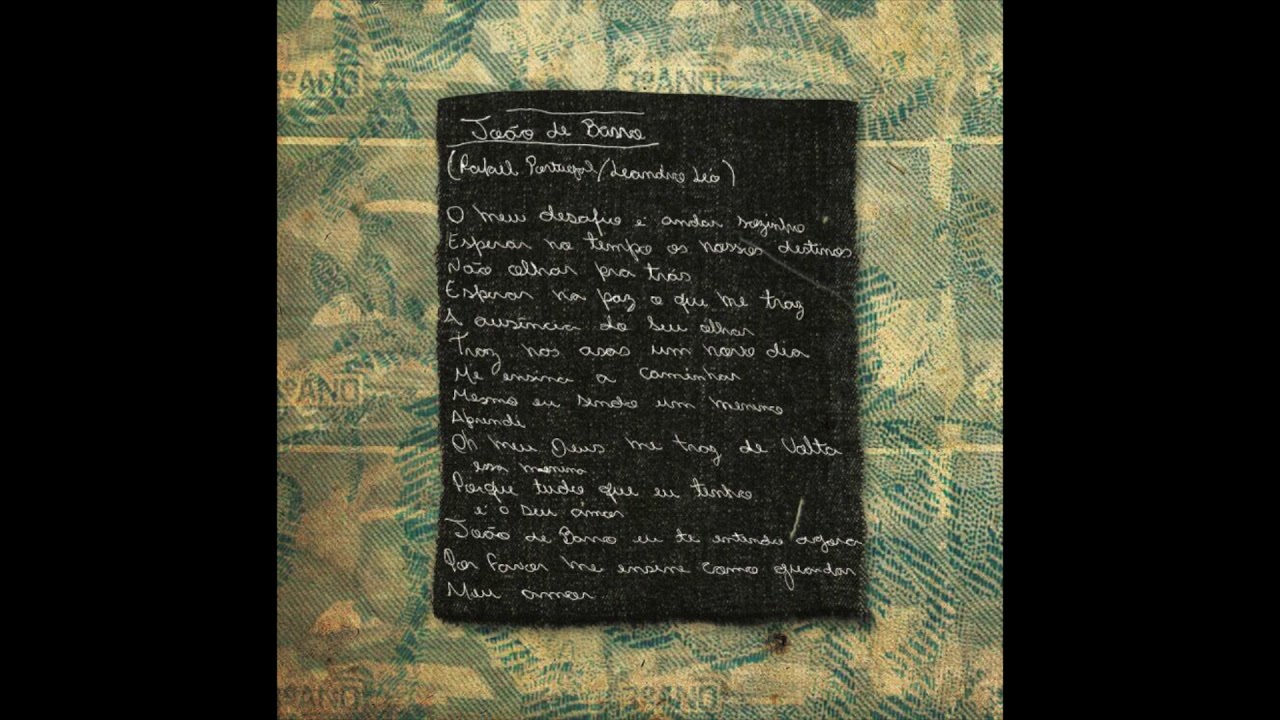 João de Barro
(Rafael Portugal/Leandro Léo)
O meu desafio é andar sozinho
Esperar no tempo os nossos destinos
Não olhar pra trás
Esperar na paz o que me traz
A ausência do seu olhar
Traz nas asas um novo dia
Me ensina a caminhar
Mesmo eu sendo um menino
Aprendi
Oh meu Deus me traz de Volta
essa menina
Porque tudo que eu tenho
é o seu amor
João de Barro eu te entendo agora
Por favor me ensine como guardar
Meu amor